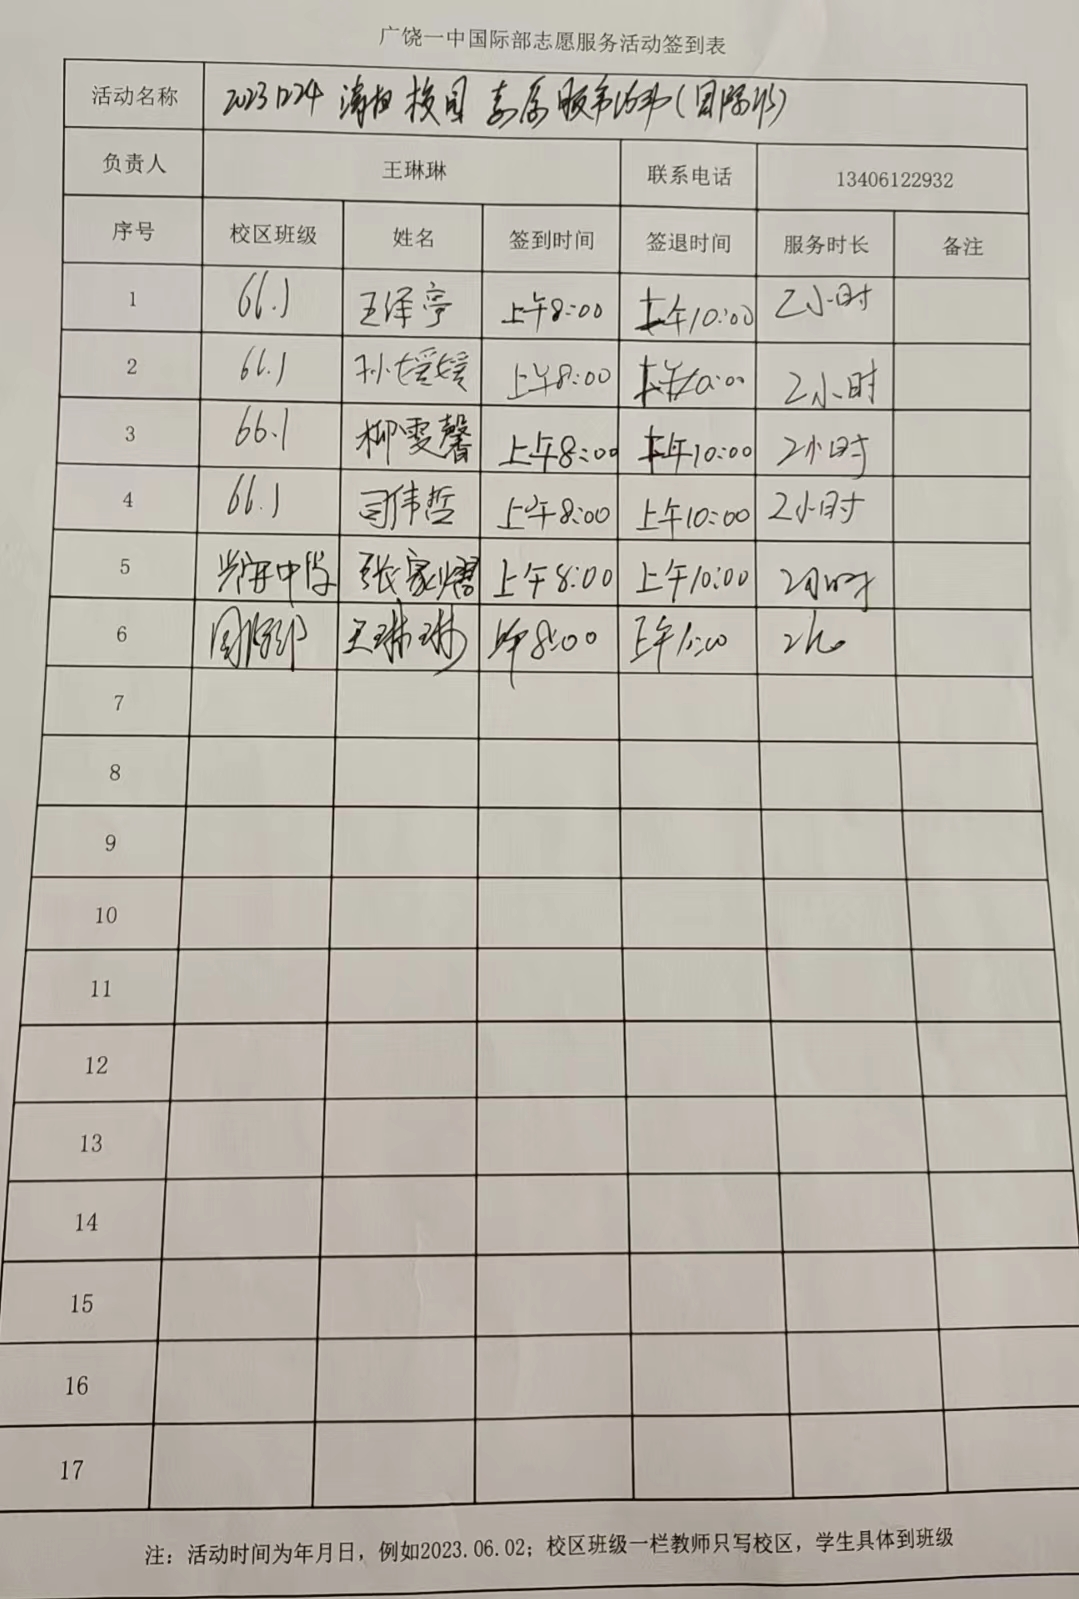 广饶一中国际部志愿服务活动签到表
活动名称 20231224 清扫校园 志愿服务活动(国际部)
负责人 王琳琳 联系电话 13406122932
序号 校区班级 姓名 签到时间 签退时间 服务时长 备注
1 66.1 王泽亭 上午8:00 上午10:00 2小时
2 66.1 孙媛媛 上午8:00 上午10:00 2小时
3 66.1 柳雯馨 上午8:00 上午10:00 2小时
4 66.1 司伟哲 上午8:00 上午10:00 2小时
5 中学 张家熠 上午8:00 上午10:00 2小时
6 国际部 王琳琳 上午8:00 上午10:00 2h
7
8
9
10
11
12
13
14
15
16
17
注：活动时间为年月日，例如2023.06.02；校区班级一栏教师只写校区，学生具体到班级